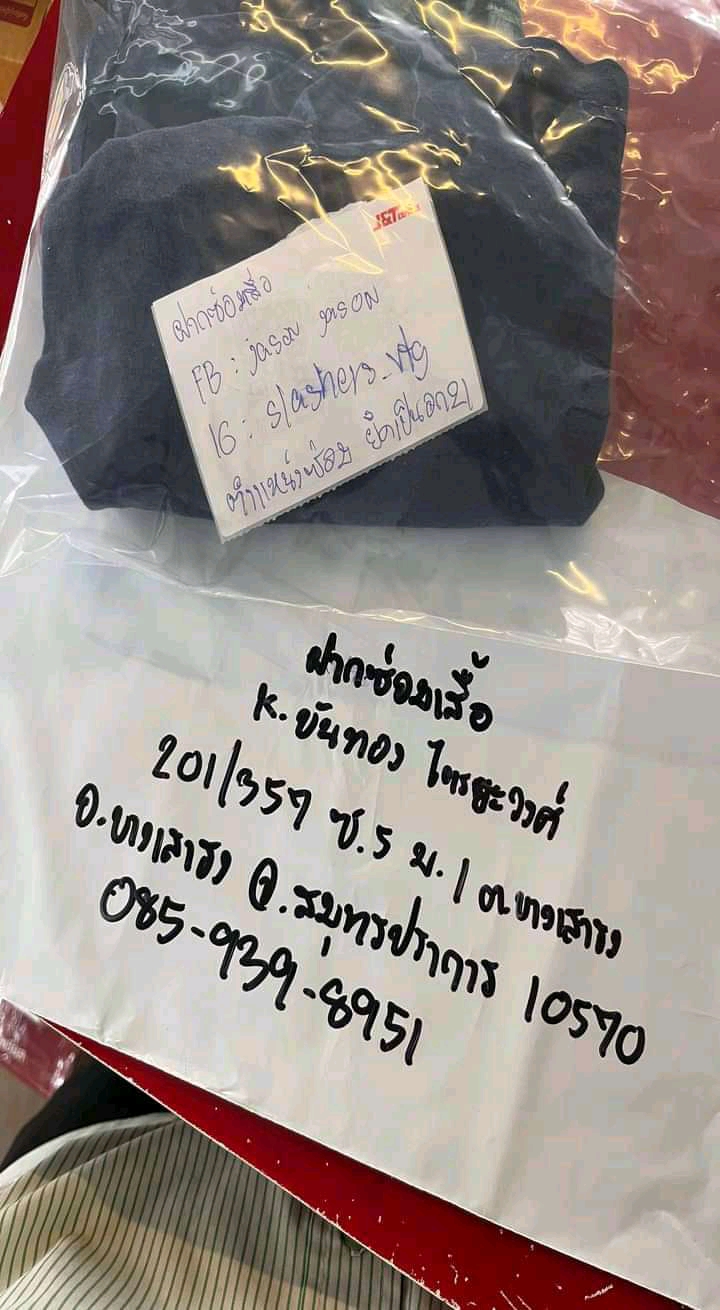 J&T
ฝากซ่อมเสื้อ
FB : jason jason
IG : slashers_vtg
ตำแหน่งซ่อม
ฝากซ่อมเสื้อ
K. ขันทอง
201/357 ซ.5 ม.1 ต.บางเสาธง
อ.บางเสาธง จ.สมุทรปราการ 10570
085-939-8951